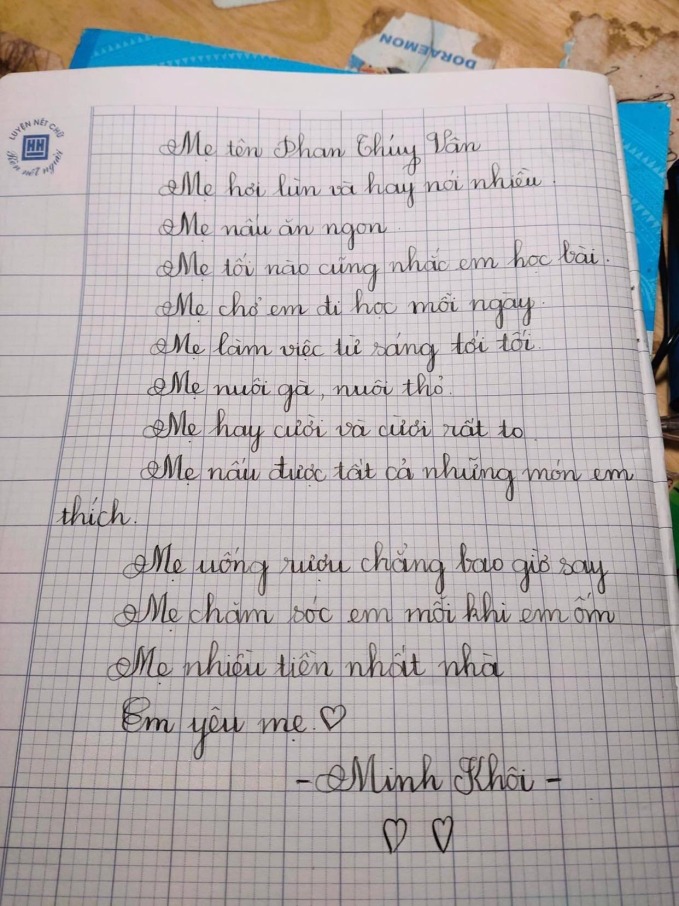 DORAEMON
LUYỆN NÉT CHỮ
HH
Rèn nết người
Mẹ tên Phan Thúy Vân
Mẹ hơi lùn và hay nói nhiều.
Mẹ nấu ăn ngon
Mẹ tối nào cũng nhắc em học bài.
Mẹ chở em đi học mỗi ngày.
Mẹ làm việc từ sáng tới tối
Mẹ nuôi gà, nuôi thỏ.
Mẹ hay cười và cười rất to
Mẹ nấu được tất cả những món em
thích.
Mẹ uống rượu chẳng bao giờ say
Mẹ chăm sóc em mỗi khi em ốm
Mẹ nhiều tiền nhất nhà
Em yêu mẹ.♡
- Minh Khôi -
♡ ♡